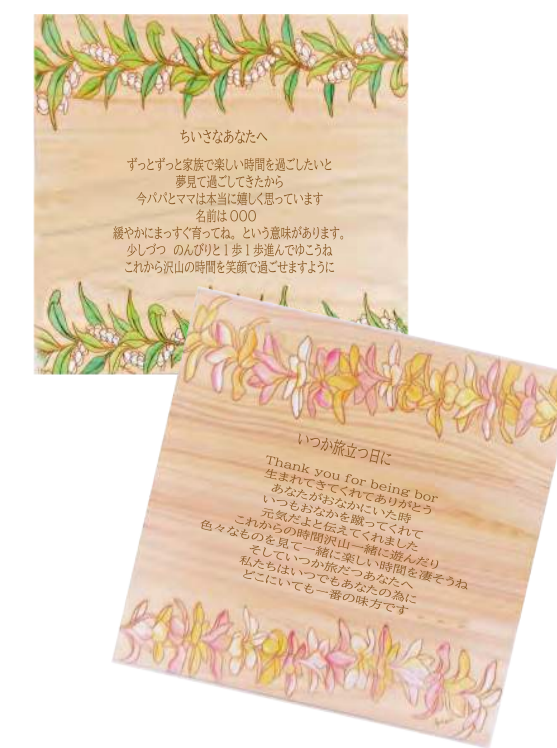 ちいさなあなたへ
ずっとずっと家族で楽しい時間を過ごしたいと
夢見て過ごしてきたから
今パパとママは本当に嬉しく思っています
名前は OOO
緩やかにまっすぐ育ってね。という意味があります。
少しづつ のんびりと1歩1歩進んでゆこうね
これから沢山の時間を笑顔で過ごせますように
いつか旅立つ日に
Thank you for being bor
生まれてきてくれてありがとう
あなたがおなかにいた時
いつもおなかを蹴ってくれて
元気だよと伝えてくれました
これからの時間沢山一緒に遊んだり
色々なものを見て一緒に楽しい時間を凄そうね
そしていつか旅だつあなたへ
私たちはいつでもあなたの為に
どこにいても一番の味方です